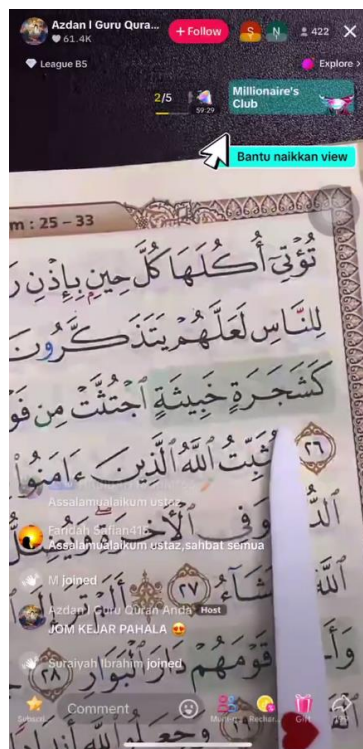 Azdan I Guru Qura...
61.4K
+ Follow
S
N
422
League B5
Explore >
2/5
59:29
Millionaire's
Club
Bantu naikkan view
m : 25 – 33
تُؤْتِىٓ أُكُلَهَا كُلَّ حِينٍۭ بِإِذْنِ
لِلنَّاسِ لَعَلَّهُمْ يَتَذَكَّرُونَ
كَشَجَرَةٍ خَبِيثَةٍ ٱجْتُثَّتْ مِن
٢٦ يُثَبِّتُ ٱللَّهُ ٱلَّذِينَ ءَامَنُوا۟
Assalamualaikum ustaz
وَفِى
Faridah Safian416
Assalamualaikum ustaz,sahbat semua
ٱللَّهُ
٢٧ أَلَمْ تَرَ إِلَى
M joined
Azdan I Guru Quran Anda Host
JOM KEJAR PAHALA 😍
قَوْمَهُمْ دَارَ ٱلْبَوَارِ ٢٨
Suraiyah Ibrahim joined
Comment
Gift
وَجَعَلُوا۟ لِلَّهِ